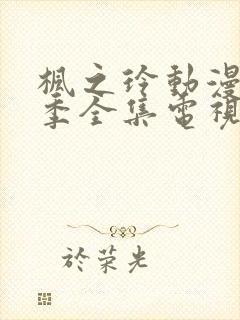 楓之玲動漫
季全集電視
於荣光